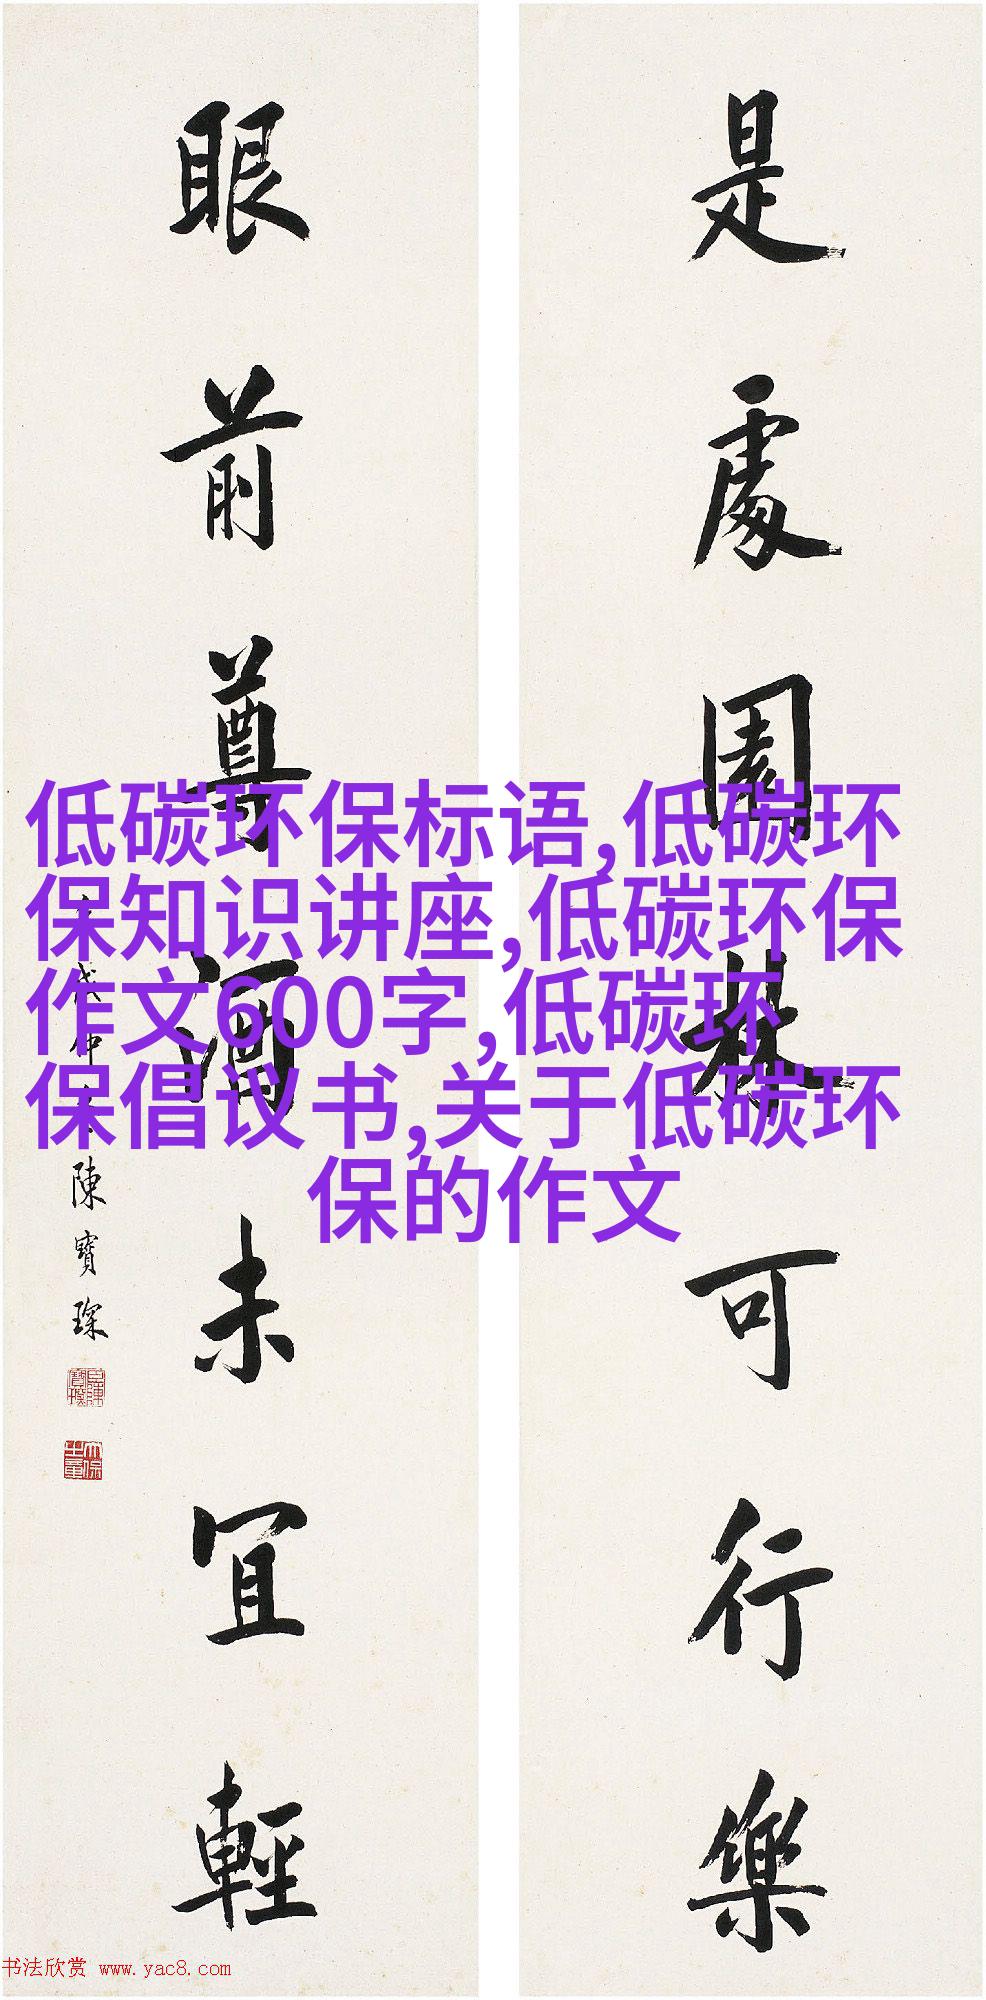 是處園林可行樂
眼前尊酒未宜輕
陳寶琛
低碳环保标语,低碳环
保知识讲座,低碳环保
作文600字,低碳环
保倡议书,关于低碳环
保的作文
书法欣赏 www.yac8.com